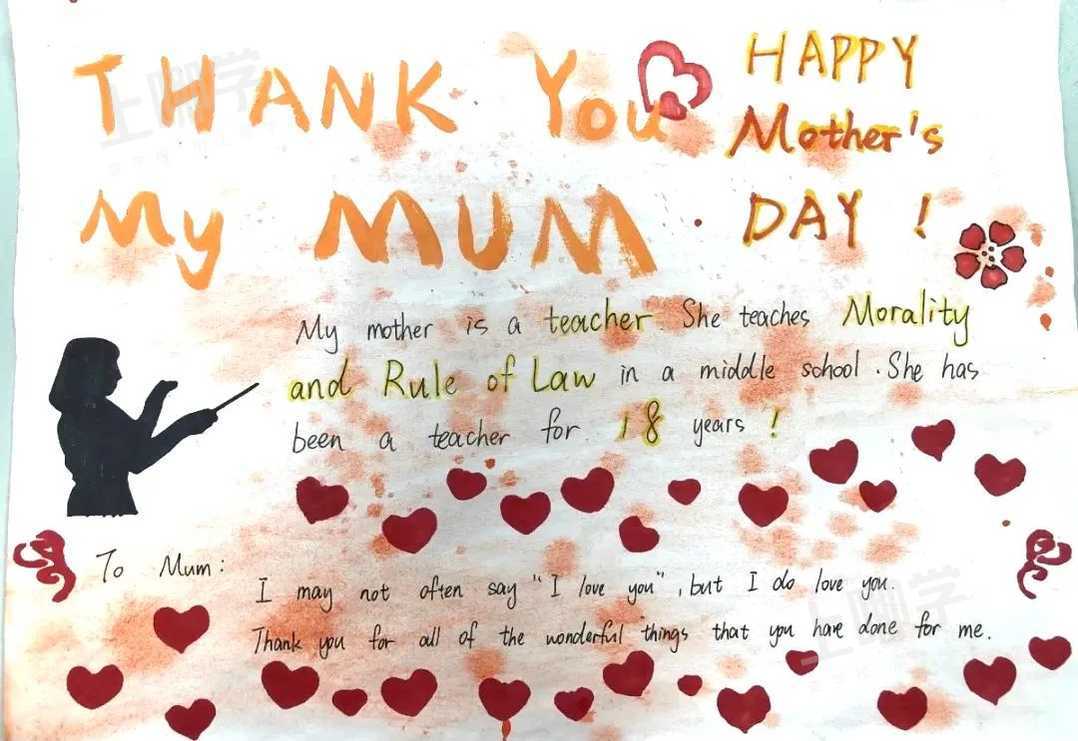 THANK You
My MUM.
HAPPY
Mother's
DAY !
My mother is a teacher. She teaches Morality
and Rule of Law in a middle school. She has
been a teacher for 18 years !
To Mum:
I may not often say "I love you", but I do love you.
Thank you for all of the wonderful things that you have done for me.
上啊学
上啊学